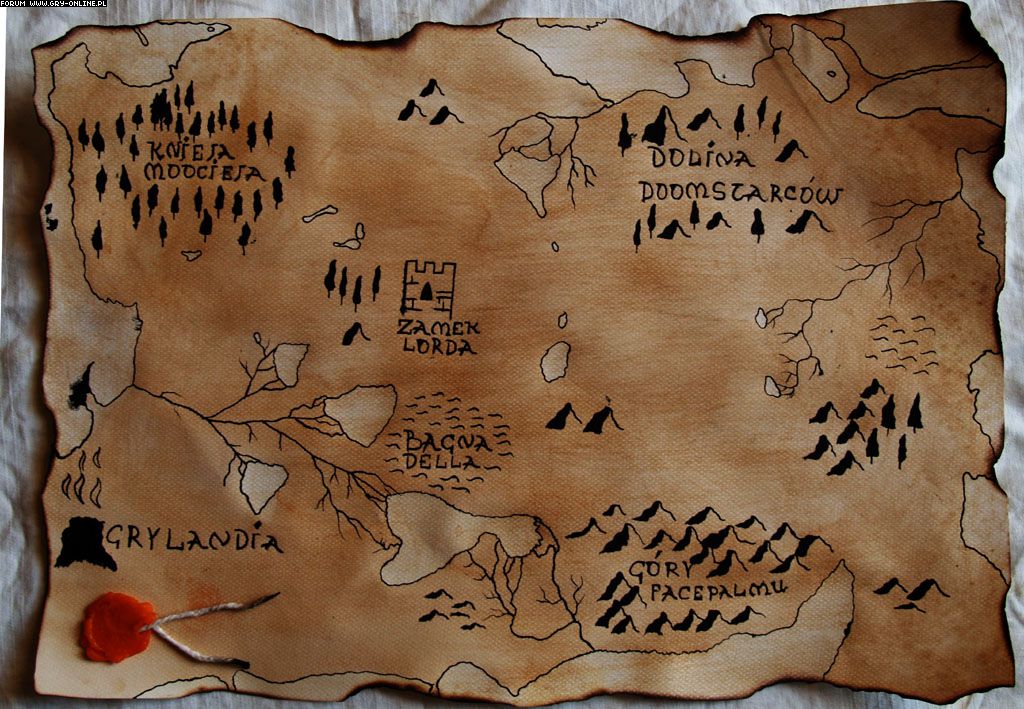 FORUM WWW.GRY-ONLINE.PL
KNIEJA
MOOCIEJA
DOLINA
DOOMSTARCÓW
ZAMEK
LORDA
BAGNA
DELLA
GRYLANDIA
GÓRY
FACEPALMU